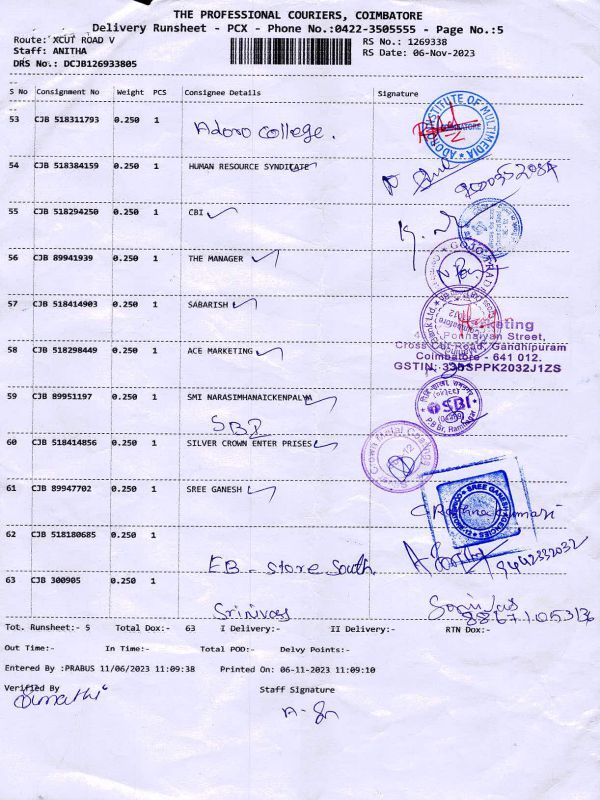 THE PROFESSIONAL COURIERS, COIMBATORE
Delivery Runsheet - PCX - Phone No.:0422-3505555 - Page No.:5
Route: XCUT ROAD V RS No.: 1269338
Staff: ANITHA RS Date: 06-Nov-2023
DRS No.: DCJB126933805
S No Consignment No Weight PCS Consignee Details Signature
53 CJB 518311793 0.250 1 Adoro college.
ADORO INSTITUTE OF MULTIMEDIA COIMBATORE
54 CJB 518384159 0.250 1 HUMAN RESOURCE SYNDICATE
55 CJB 518294250 0.250 1 CBI
56 CJB 89941939 0.250 1 THE MANAGER
57 CJB 518414903 0.250 1 SABARISH
Marketing
Ponnaiyan Street,
Cross Cut Road, Gandhipuram
58 CJB 518298449 0.250 1 ACE MARKETING Coimbatore - 641 012.
GSTIN: 33BSPPK2032J1ZS
59 CJB 89951197 0.250 1 SMI NARASIMHANAICKENPALYA
SBI
SBI
60 CJB 518414856 0.250 1 SILVER CROWN ENTER PRISES
Crown Metal Castings
61 CJB 89947702 0.250 1 SREE GANESH
SREE GANESH AGENCIES
62 CJB 518180685 0.250 1
EB - Store South 9442332032
63 CJB 300905 0.250 1
Srinivas Srinivas
Tot. Runsheet:- 5 Total Dox:- 63 I Delivery:- II Delivery:- RTN Dox:-
Out Time:- In Time:- Total POD:- Delvy Points:-
Entered By :PRABUS 11/06/2023 11:09:38 Printed On: 06-11-2023 11:09:10
Verified By Staff Signature